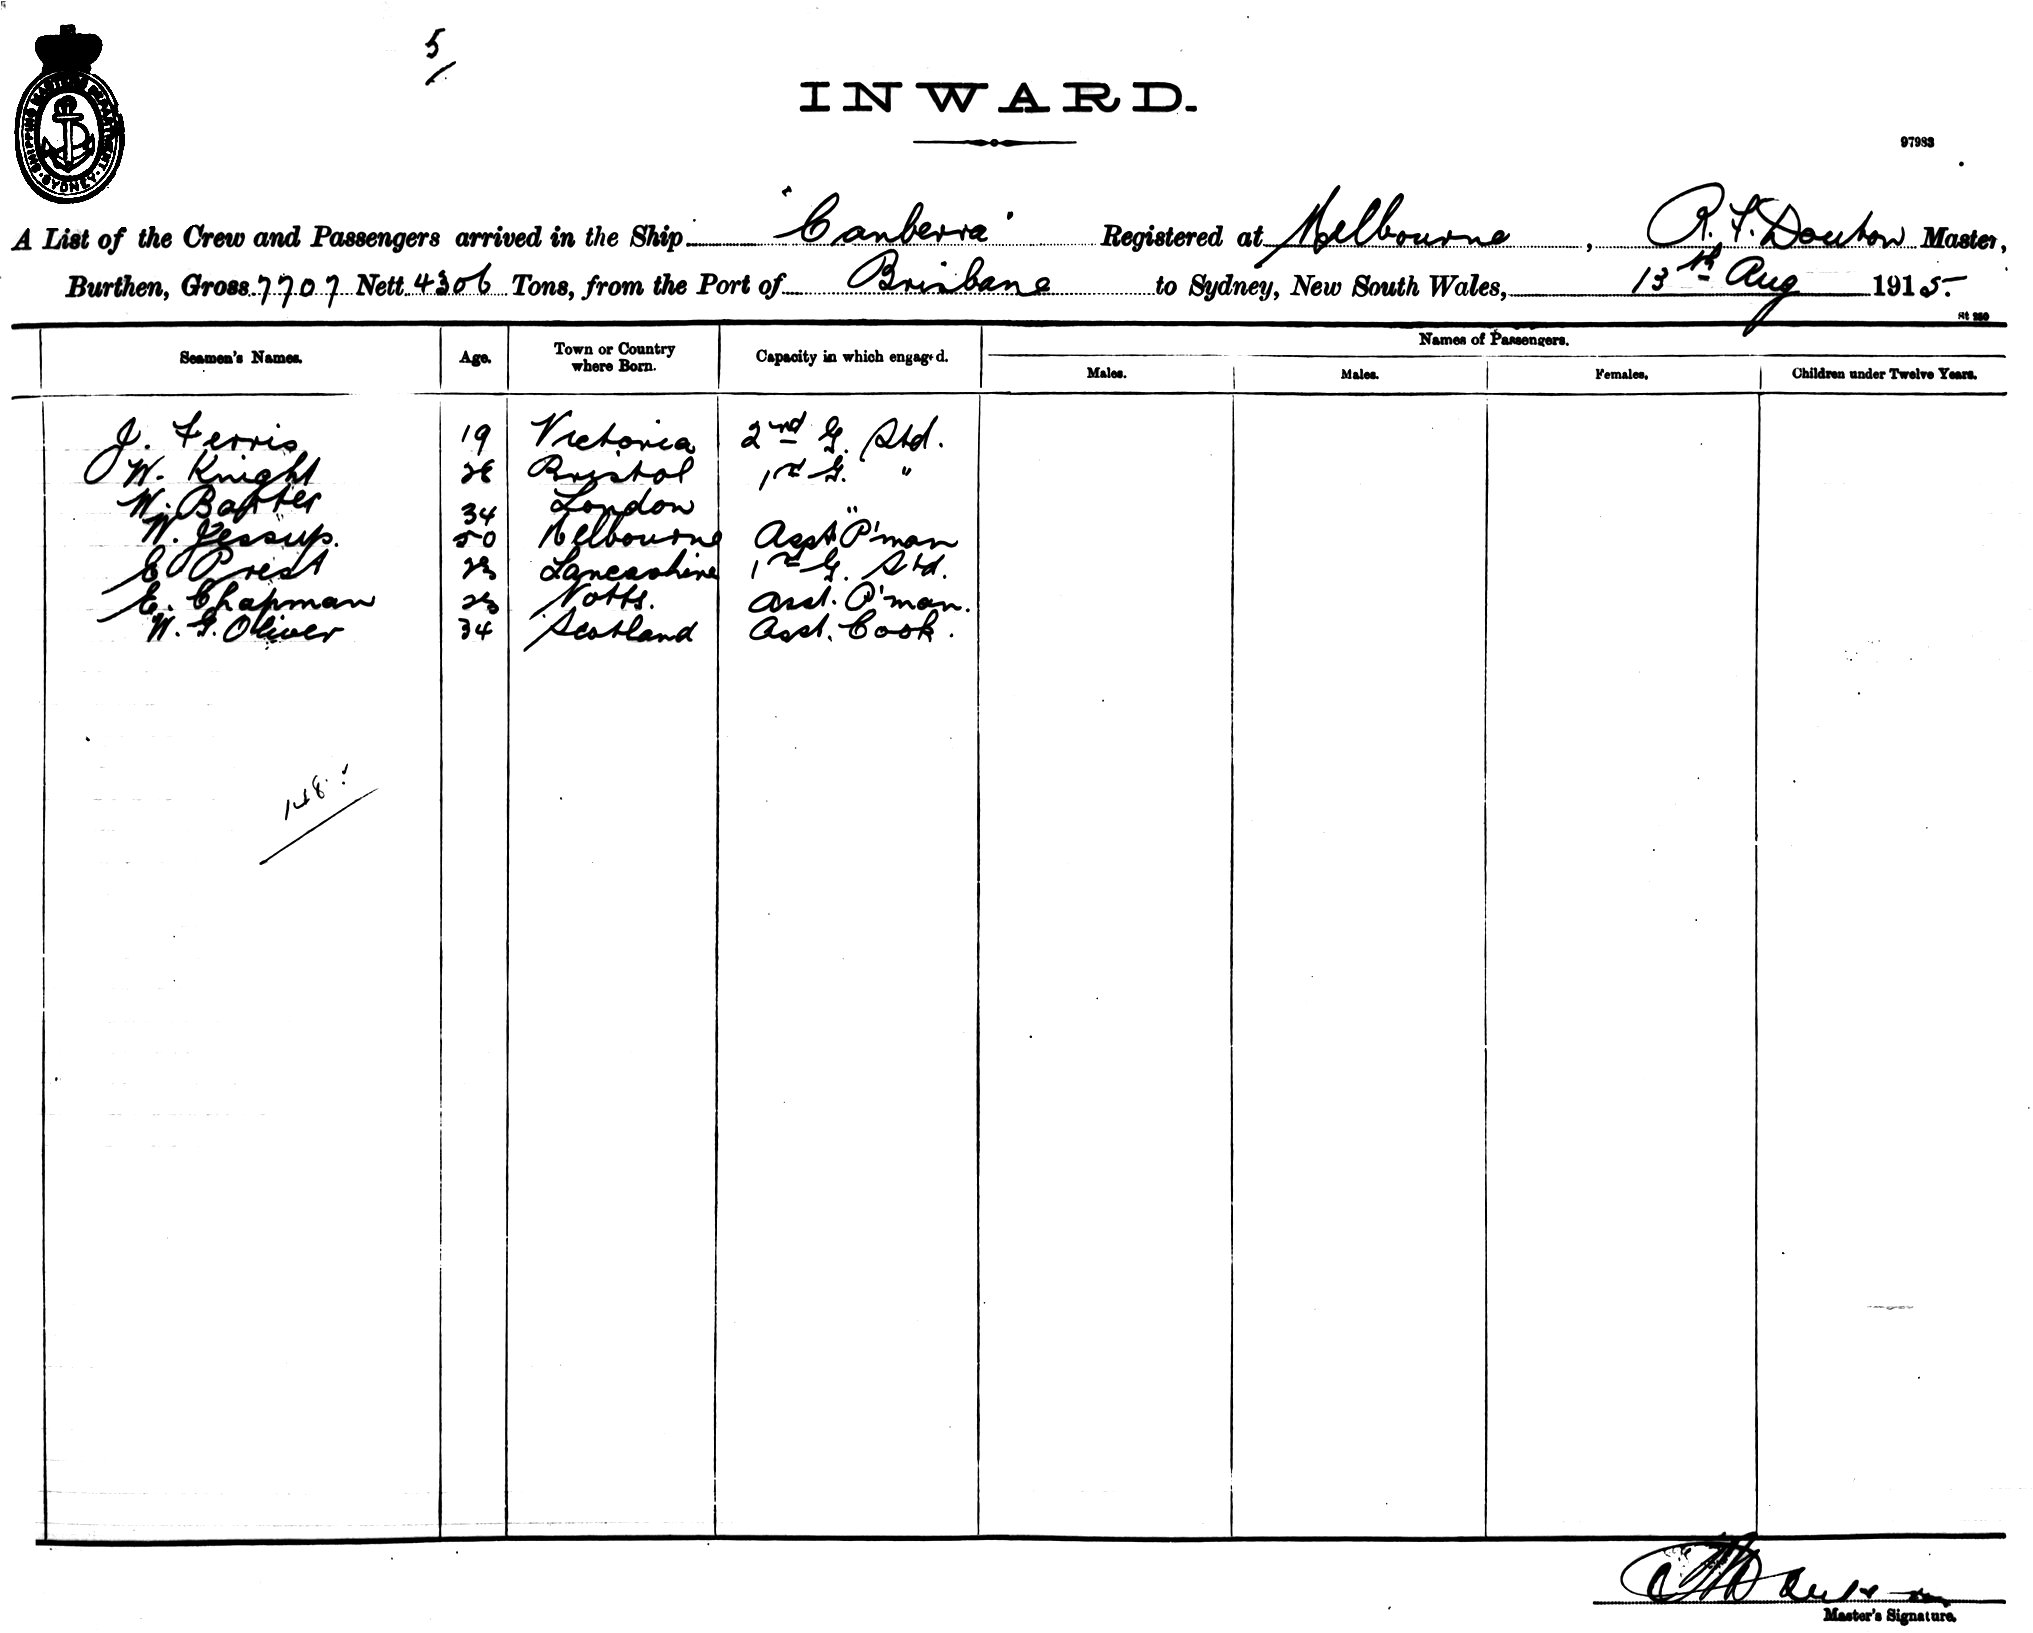 5
INWARD.
SHIPPING MASTER'S DEPARTMENT SYDNEY
97983
A List of the Crew and Passengers arrived in the Ship "Canberra" Registered at Melbourne, R. F. Douton Master,
Burthen, Gross 7707 Nett 4306 Tons, from the Port of Brisbane to Sydney, New South Wales, 13th Aug 1915.
St 280
Seamen's Names. Age. Town or Country where Born. Capacity in which engaged. Names of Passengers.
Males. Males. Females. Children under Twelve Years.
J. Ferris 19 Victoria 2nd G. Std.
W. Knight 28 Bristol 1st G. "
W. Baxter 34 London "
W. Jessup. 50 Melbourne Asst. P'man
E Prest 23 Lancashire 1st G. Std.
E. Chapman 23 Notts. Asst. P'man.
W. G. Oliver 34 Scotland Asst. Cook.
148
Master's Signature.